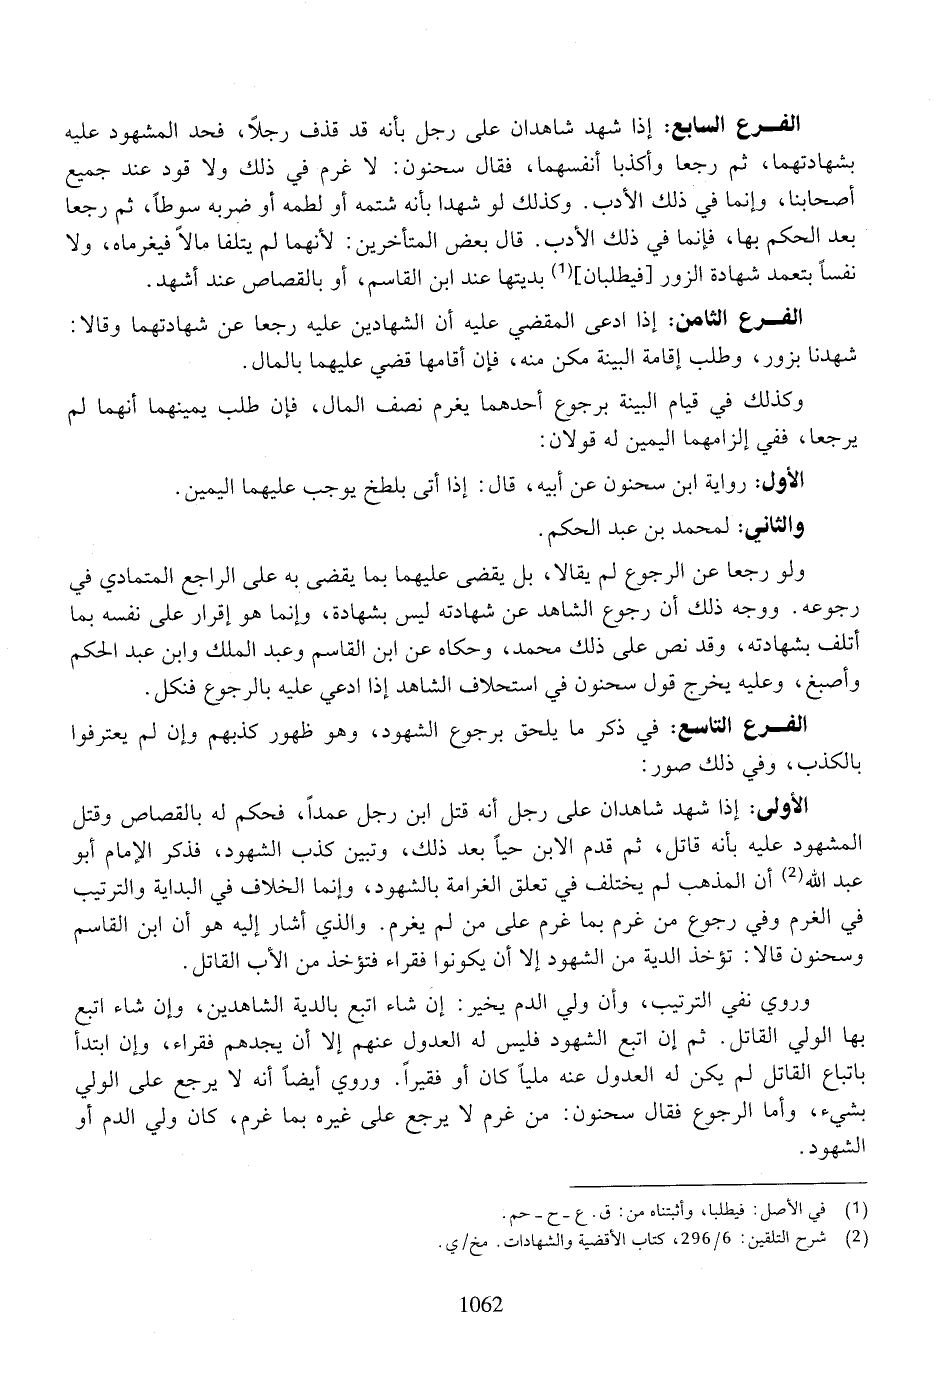 الفرع السابع: إذا شهد شاهدان على رجل بأنه قد قذف رجلاً، فحد المشهود عليه
بشهادتهما، ثم رجعا وأكذبا أنفسهما، فقال سحنون: لا غرم في ذلك ولا قود عند جميع
أصحابنا، وإنما في ذلك الأدب. وكذلك لو شهدا بأنه شتمه أو لطمه أو ضربه سوطاً، ثم رجعا
بعد الحكم بها، فإنما في ذلك الأدب. قال بعض المتأخرين: لأنهما لم يتلفا مالاً فيغرماه، ولا
نفساً بتعمد شهادة الزور [فيطلبان](1) بديتها عند ابن القاسم، أو بالقصاص عند أشهد.
الفرع الثامن: إذا ادعى المقضي عليه أن الشهادين عليه رجعا عن شهادتهما وقالا:
شهدنا بزور، وطلب إقامة البينة مكن منه، فإن أقامها قضي عليهما بالمال.
وكذلك في قيام البينة برجوع أحدهما يغرم نصف المال، فإن طلب يمينهما أنهما لم
يرجعا، ففي إلزامهما اليمين له قولان:
الأول: رواية ابن سحنون عن أبيه، قال: إذا أتى بلطخ يوجب عليهما اليمين.
والثاني: لمحمد بن عبد الحكم.
ولو رجعا عن الرجوع لم يقالا، بل يقضى عليهما بما يقضى به على الراجع المتمادي في
رجوعه. ووجه ذلك أن رجوع الشاهد عن شهادته ليس بشهادة، وإنما هو إقرار على نفسه بما
أتلف بشهادته، وقد نص على ذلك محمد، وحكاه عن ابن القاسم وعبد الملك وابن عبد الحكم
وأصبغ، وعليه يخرج قول سحنون في استحلاف الشاهد إذا ادعي عليه بالرجوع فنكل.
الفرع التاسع: في ذكر ما يلحق برجوع الشهود، وهو ظهور كذبهم وإن لم يعترفوا
بالكذب، وفي ذلك صور:
الأولى: إذا شهد شاهدان على رجل أنه قتل ابن رجل عمداً، فحكم له بالقصاص وقتل
المشهود عليه بأنه قاتل، ثم قدم الابن حياً بعد ذلك، وتبين كذب الشهود، فذكر الإمام أبو
عبد الله(2) أن المذهب لم يختلف في تعلق الغرامة بالشهود، وإنما الخلاف في البداية والترتيب
في الغرم وفي رجوع من غرم بما غرم على من لم يغرم. والذي أشار إليه هو أن ابن القاسم
وسحنون قالا: تؤخذ الدية من الشهود إلا أن يكونوا فقراء فتؤخذ من الأب القاتل.
وروي نفي الترتيب، وأن ولي الدم يخير: إن شاء اتبع بالدية الشاهدين، وإن شاء اتبع
بها الولي القاتل. ثم إن اتبع الشهود فليس له العدول عنهم إلا أن يجدهم فقراء، وإن ابتدأ
باتباع القاتل لم يكن له العدول عنه ملياً كان أو فقيراً. وروي أيضاً أنه لا يرجع على الولي
بشيء، وأما الرجوع فقال سحنون: من غرم لا يرجع على غيره بما غرم، كان ولي الدم أو
الشهود.
(1) في الأصل: فيطلبا، وأثبتناه من: ق. ع - ح - حم.
(2) شرح التلقين: 296/6، كتاب الأقضية والشهادات. مخ/ي.
1062